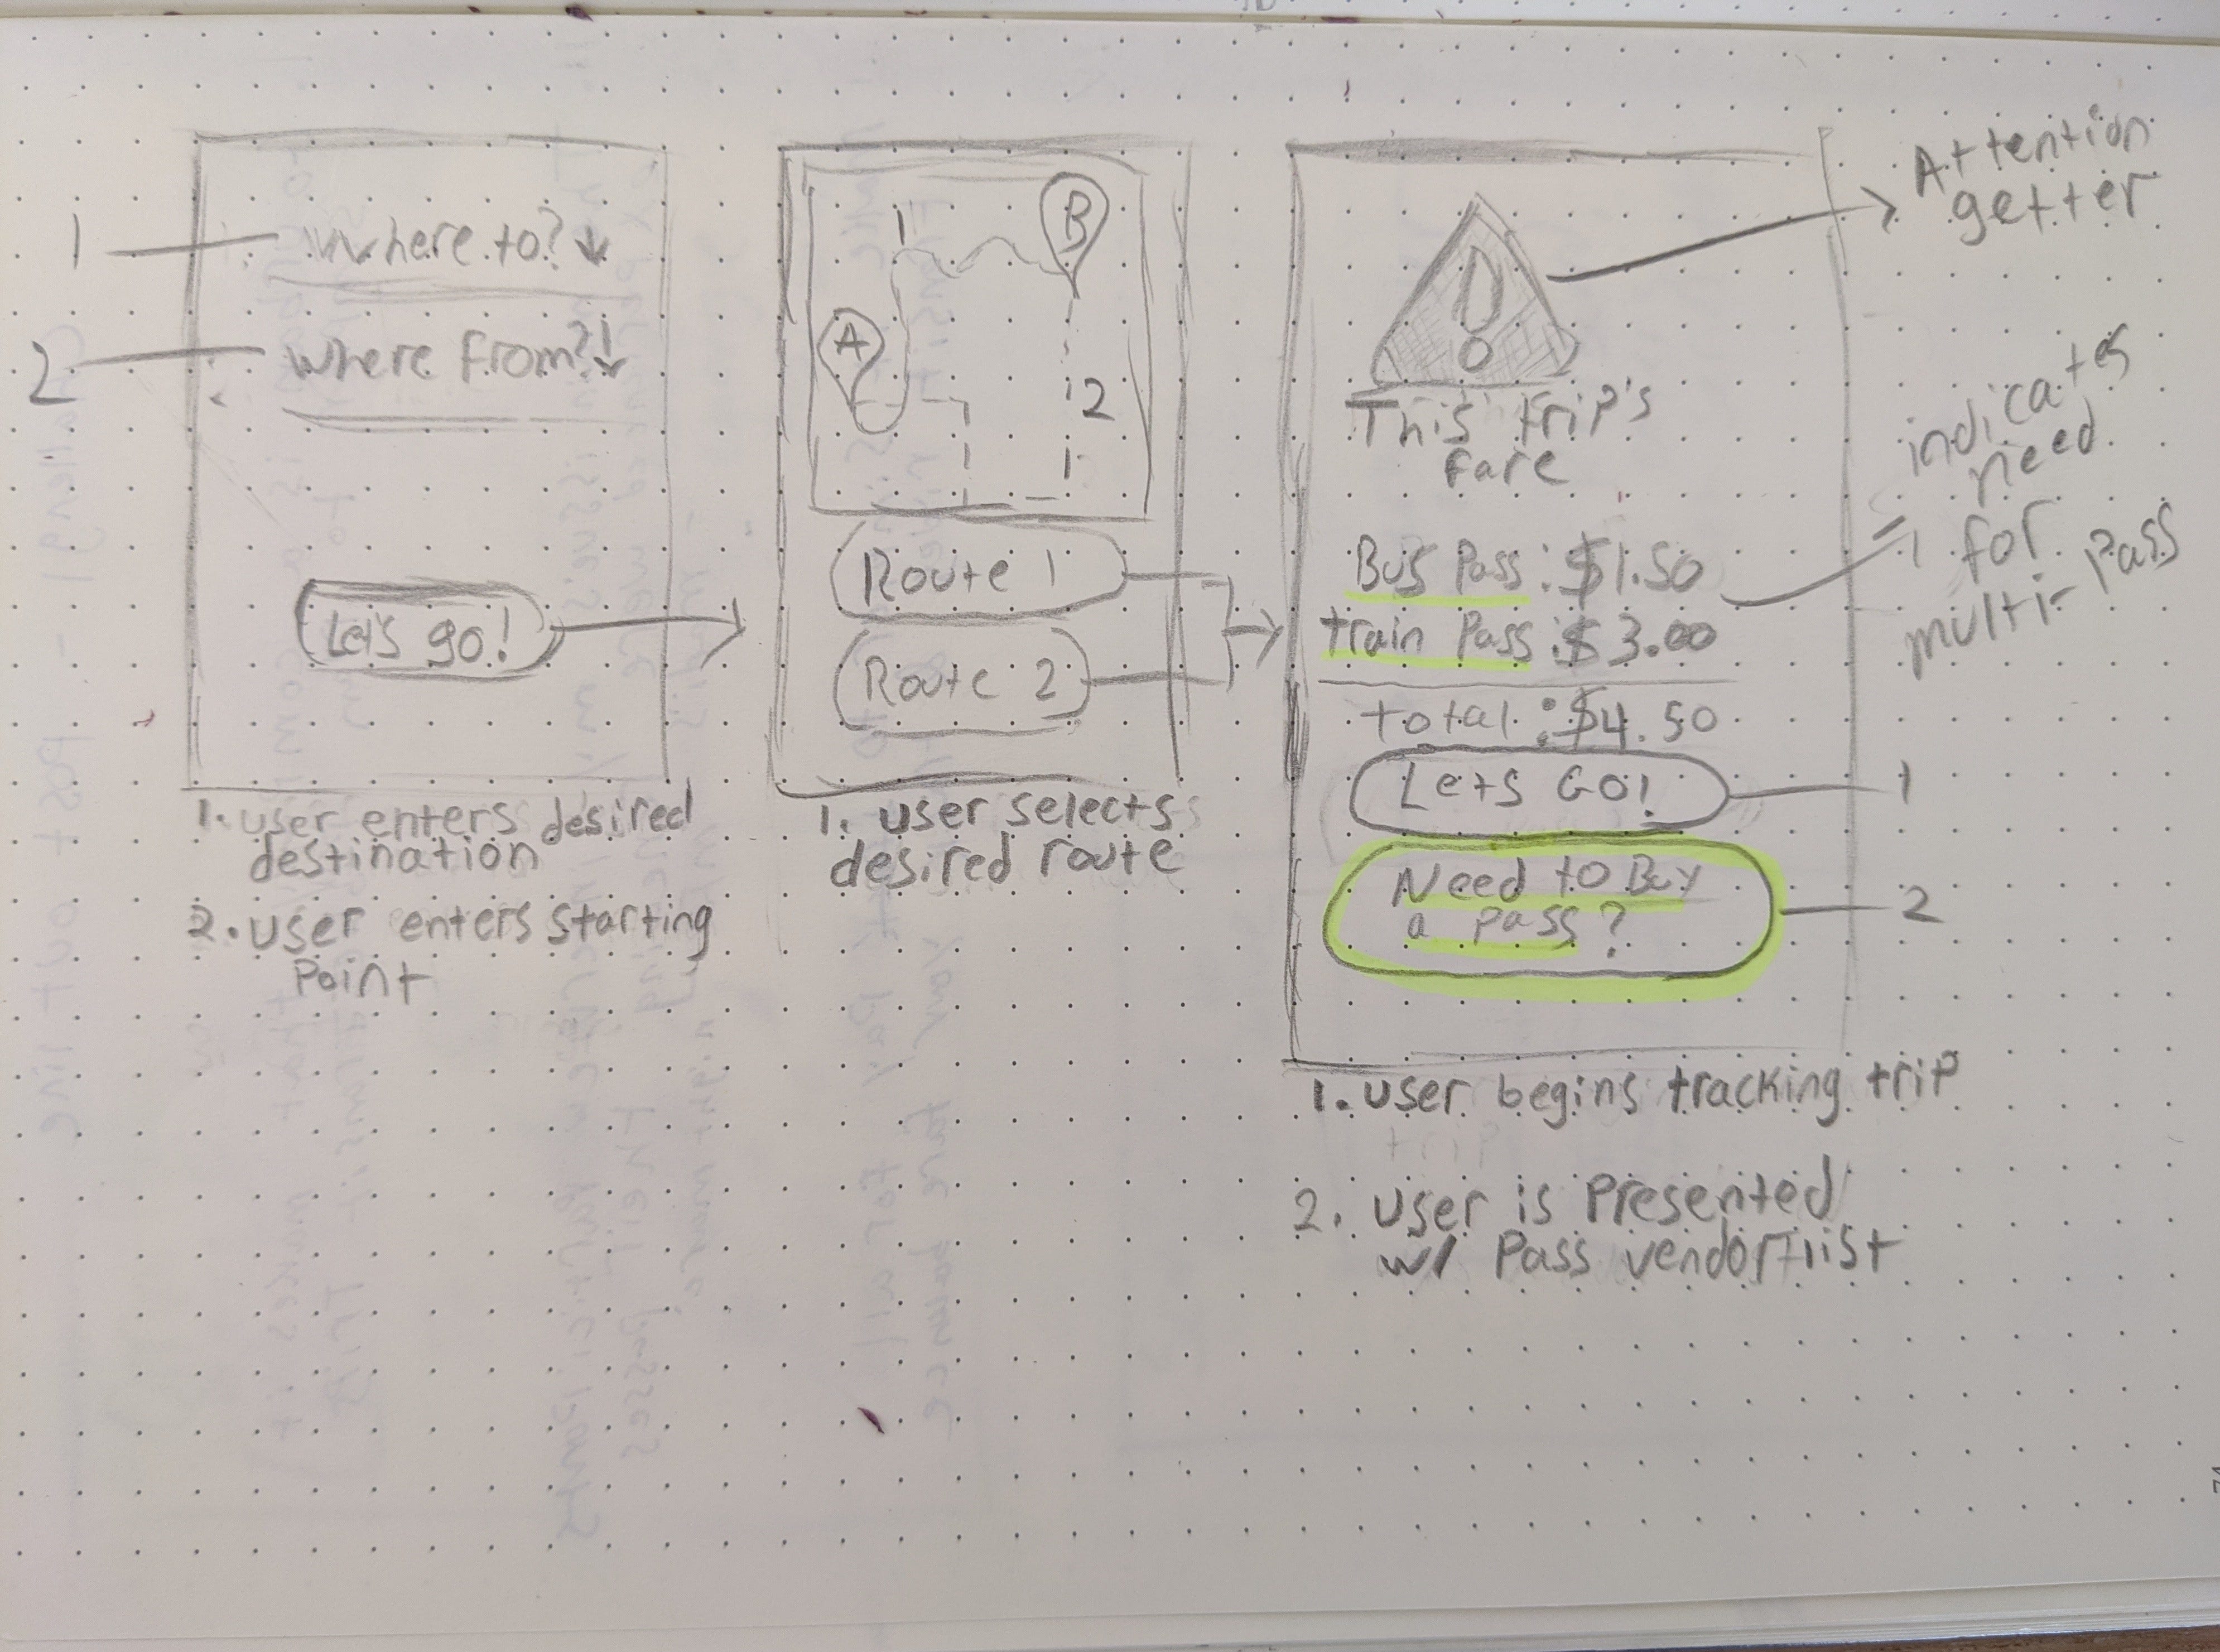 1
where to? ↓
2
where from? ↓
Let's go!
1. user enters desired
destination
2. user enters starting
Point
1
B
A
2
Route 1
Route 2
1. user selects
desired route
Attention
getter
This trip's
fare
indicates
need
for
multi-Pass
Bus Pass: $1.50
train Pass: $3.00
total: $4.50
Lets GO!
1
Need to Buy
a pass?
2
1. user begins tracking trip
2. user is Presented
w/ Pass vendor list